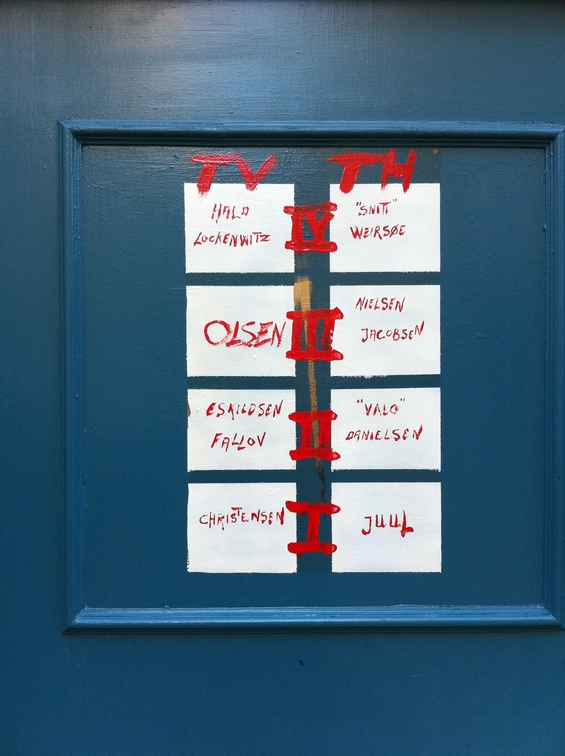 TV TH
HALD
LOCKENWITZ
IV
"SNIT"
WEIRSØE
OLSEN
III
NIELSEN
JACOBSEN
ESKILDSEN
FALLOV
II
"VALO"
DANIELSEN
CHRISTENSEN
I
JUUL